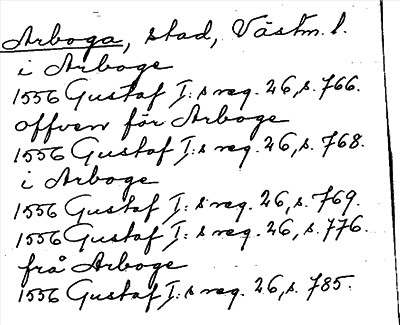 Arboga, stad, Västm. l.
i Arboge
1556 Gustaf I:s reg. 26, s. 766.
offven för Arboge
1556 Gustaf I:s reg. 26, s. 768.
i Arboge
1556 Gustaf I:s reg. 26, s. 769.
1556 Gustaf I:s reg. 26, s. 776.
frå Arboge
1556 Gustaf I:s reg. 26, s. 785.